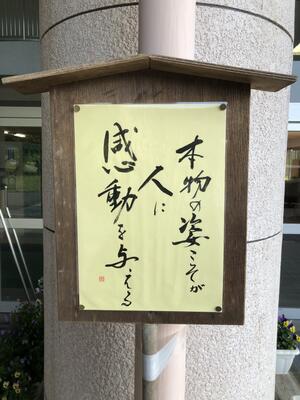 本物の姿こそが
人に
感動を与える